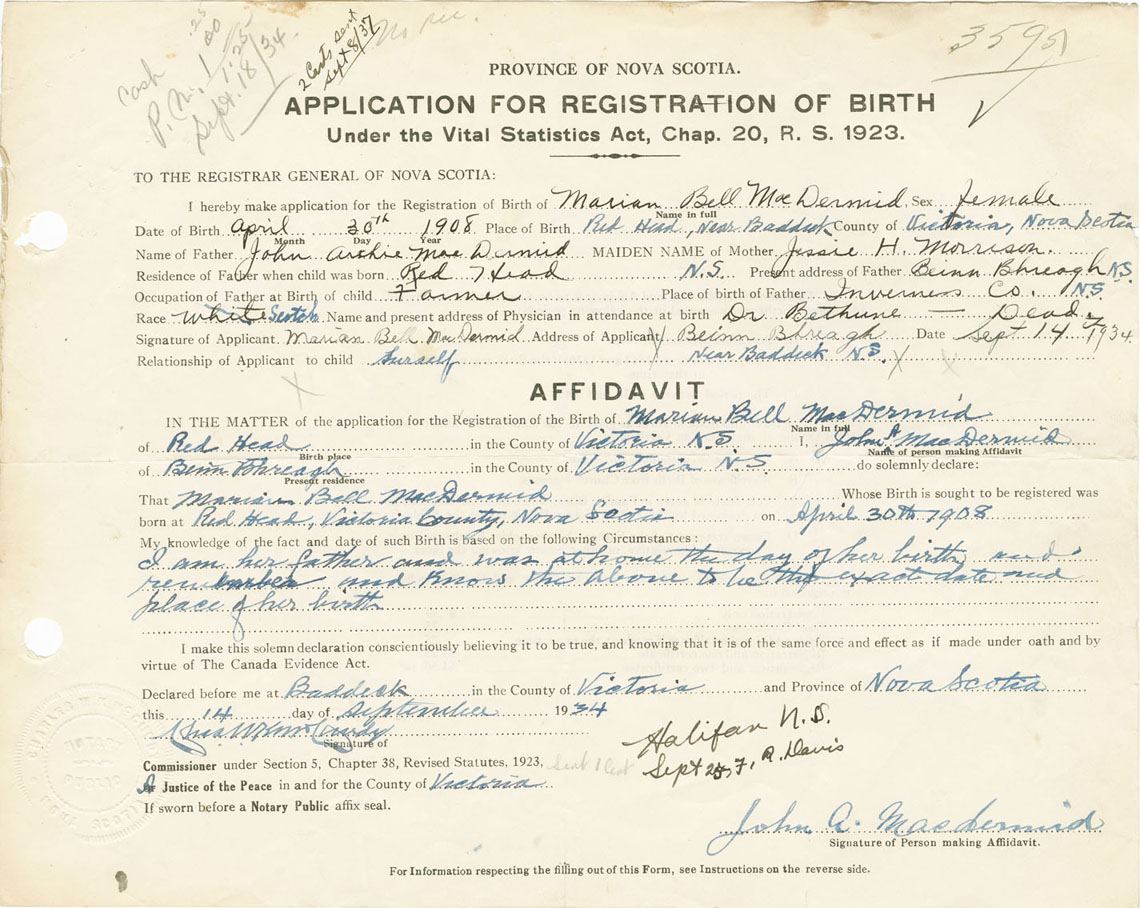 Cash .25
P. N. 1 00
1.25
Sept. 18/34
2 Certs sent
Sept 8/37
no rec.
3595
PROVINCE OF NOVA SCOTIA.
APPLICATION FOR REGISTRATION OF BIRTH
Under the Vital Statistics Act, Chap. 20, R. S. 1923.
TO THE REGISTRAR GENERAL OF NOVA SCOTIA:
I hereby make application for the Registration of Birth of Marian Bell MacDermid Sex female
Name in full
Date of Birth April 30th 1908 Place of Birth Red Head, Near Baddeck County of Victoria, Nova Scotia
Month Day Year
Name of Father John Archie MacDermid MAIDEN NAME of Mother Jessie H. Morrison.
Residence of Father when child was born Red Head N.S. Present address of Father Beinn Bhreagh N.S.
Occupation of Father at Birth of child Farmer Place of birth of Father Inverness Co. N.S.
Race White Scotch Name and present address of Physician in attendance at birth Dr Bethune — Dead
Signature of Applicant Marian Bell MacDermid Address of Applicant Beinn Bhreagh Date Sept 14 1934
Relationship of Applicant to child herself Near Baddeck N.S. X X
X
AFFIDAVIT
IN THE MATTER of the application for the Registration of the Birth of Marian Bell MacDermid
Name in full
of Red Head in the County of Victoria N.S. I, John A MacDermid
Birth place Name of person making Affidavit
of Beinn Bhreagh in the County of Victoria N.S do solemnly declare:
Present residence
That Marian Bell MacDermid Whose Birth is sought to be registered was
born at Red Head, Victoria County, Nova Scotia on April 30th 1908
My knowledge of the fact and date of such Birth is based on the following Circumstances :
I am her father and was at home the day of her birth and
remember and know the above to be the exact date and
place of her birth
I make this solemn declaration conscientiously believing it to be true, and knowing that it is of the same force and effect as if made under oath and by
virtue of The Canada Evidence Act.
Declared before me at Baddeck in the County of Victoria and Province of Nova Scotia
this 14 day of September 1934
Signature of
Halifax N.S.
Sept 25 F. R. Davis
Commissioner under Section 5, Chapter 38, Revised Statutes, 1923, Sent 1 Cert
A Justice of the Peace in and for the County of Victoria
If sworn before a Notary Public affix seal.
NOTARY PUBLIC
John A. MacDermid
Signature of Person making Affidavit.
For Information respecting the filling out of this Form, see Instructions on the reverse side.